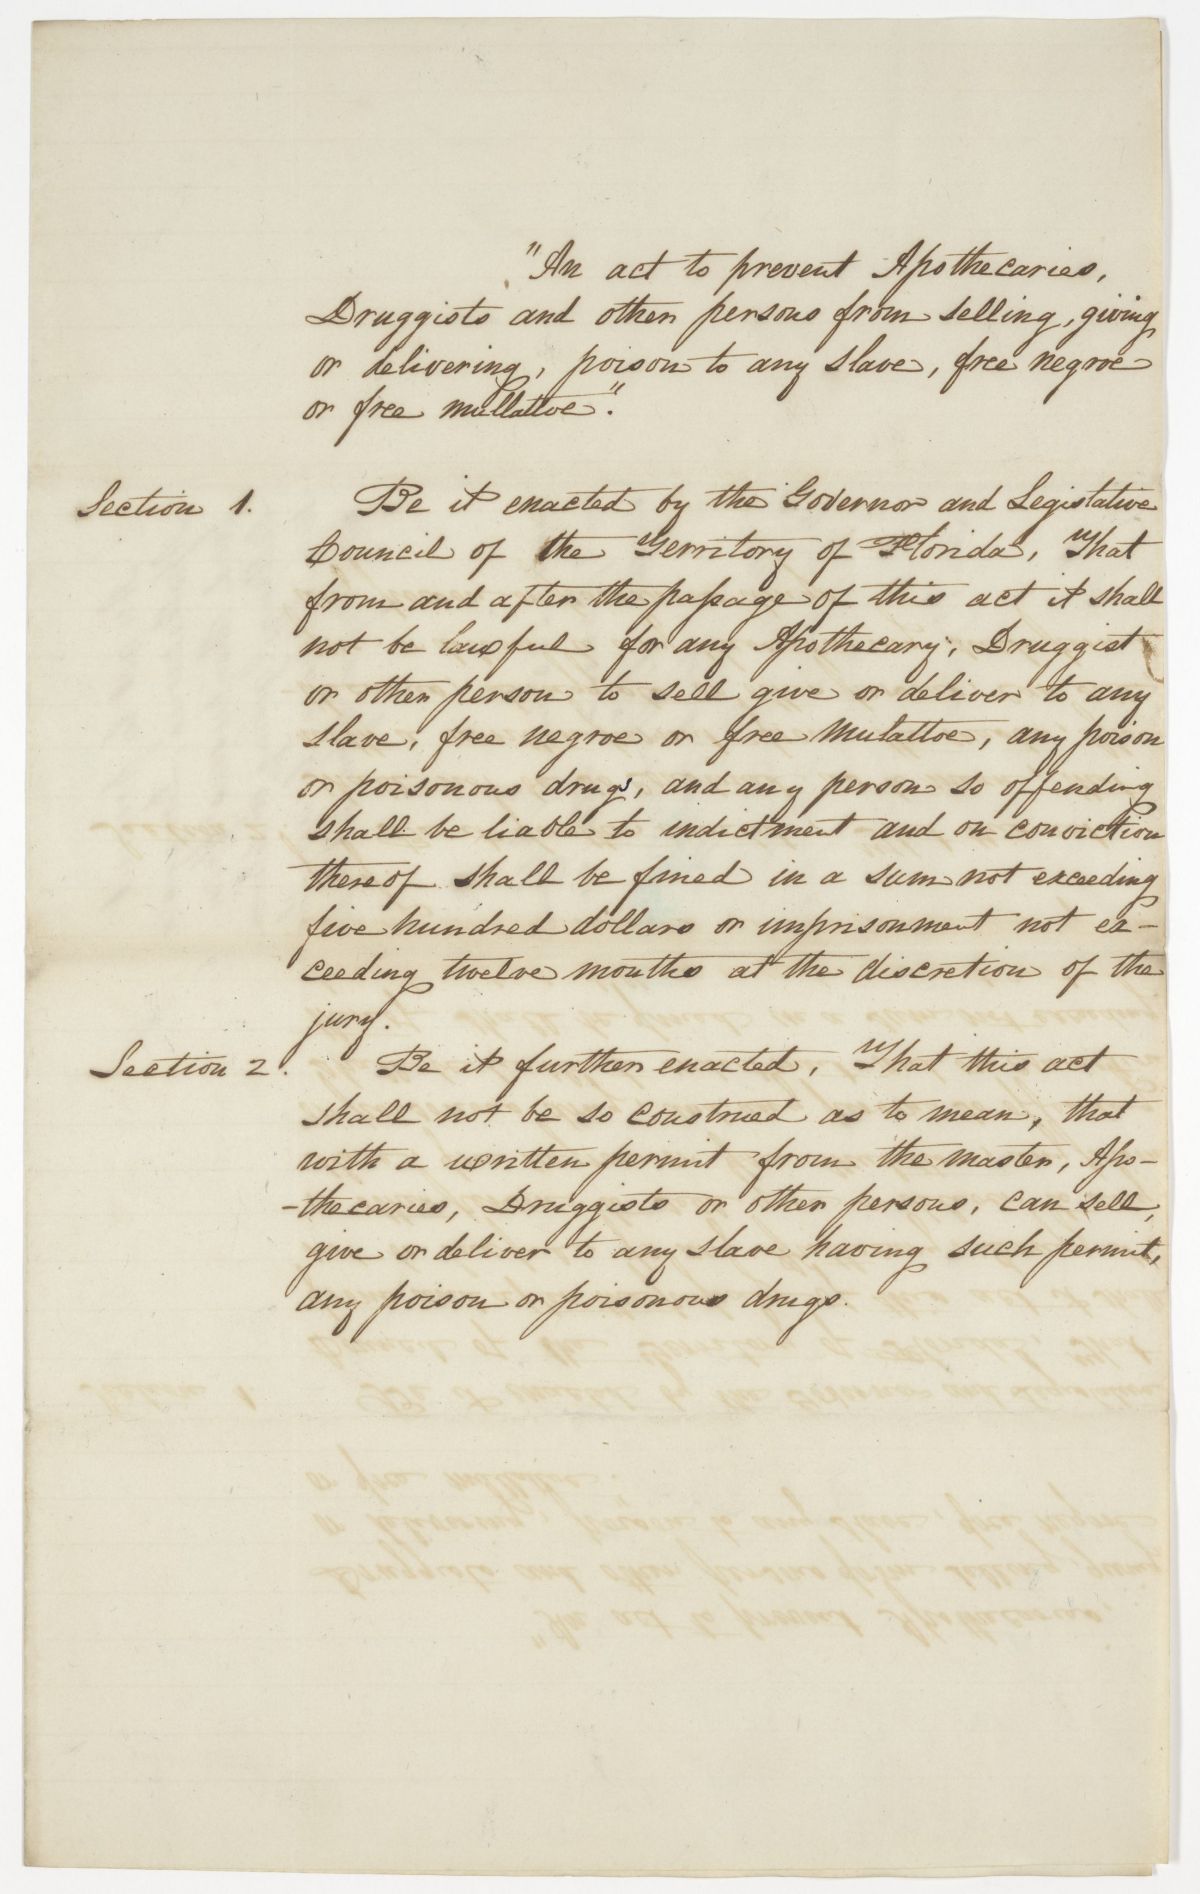 "An act to prevent Apothecaries,
Druggists and other persons from selling, giving
or delivering, poison to any slave, free negroe
or free mullattoe".
Section 1. Be it enacted by the Governor and Legislative
Council of the Territory of Florida, That
from and after the passage of this act it shall
not be lawful for any Apothecary, Druggist
or other person to sell give or deliver to any
slave, free negroe or free mulattoe, any poison
or poisonous drugs, and any person so offending
shall be liable to indictment and on conviction
thereof shall be fined in a sum not exceeding
five hundred dollars or imprisonment not ex-
ceeding twelve months at the discretion of the
jury.
Section 2. Be it further enacted, That this act
shall not be so construed as to mean, that
with a written permit from the master, Apo-
-thecaries, Druggists or other persons, can sell,
give or deliver to any slave having such permit,
any poison or poisonous drugs.